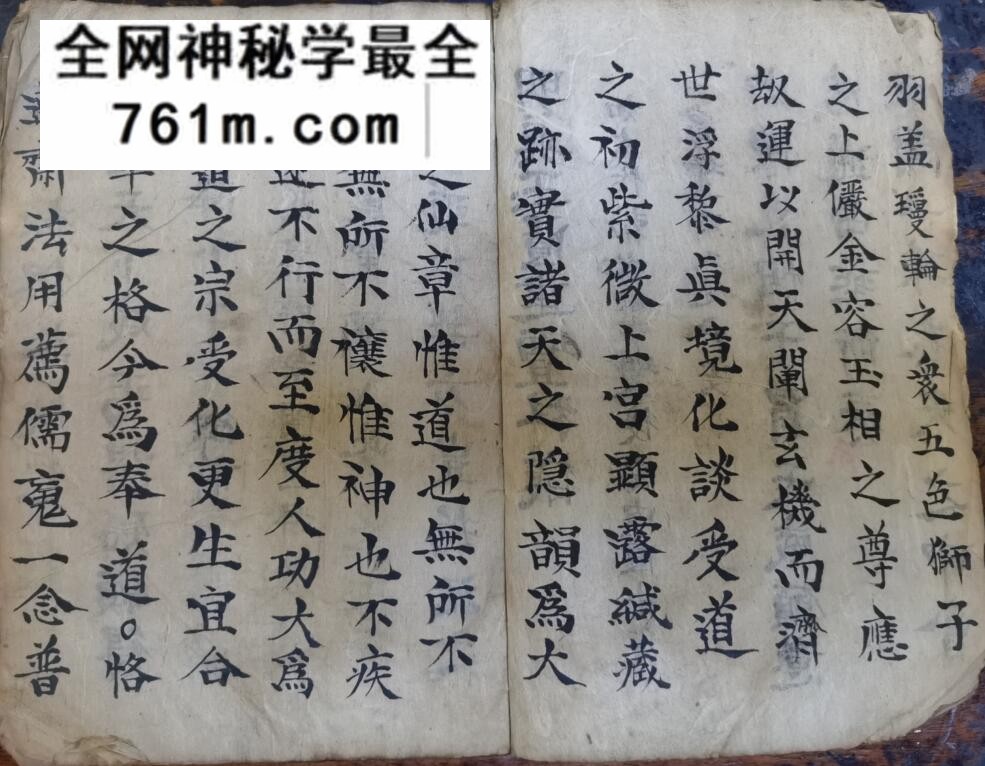 全网神秘学最全
761m.com
羽盖瓊輪之衆五色獅子
之上儼金容玉相之尊應
劫運以開天闡玄機而濟
世浮黎眞境化談受道
之初紫微上宮顯露緘藏
之跡實諸天之隱韻爲大
之仙章惟道也無所不
無所不禳惟神也不疾
不行而至度人功大爲
道之宗受化更生宜合
之格今爲奉 道。恪
齋法用薦儒䰟一念普